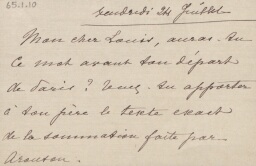 65.1.10
Vendredi 24 Juillet
Mon cher Louis, auras-tu
ce mot avant ton départ
de Paris ? Veux-tu apporter
à ton père le texte exact
de la sommation faite par
Aronson.